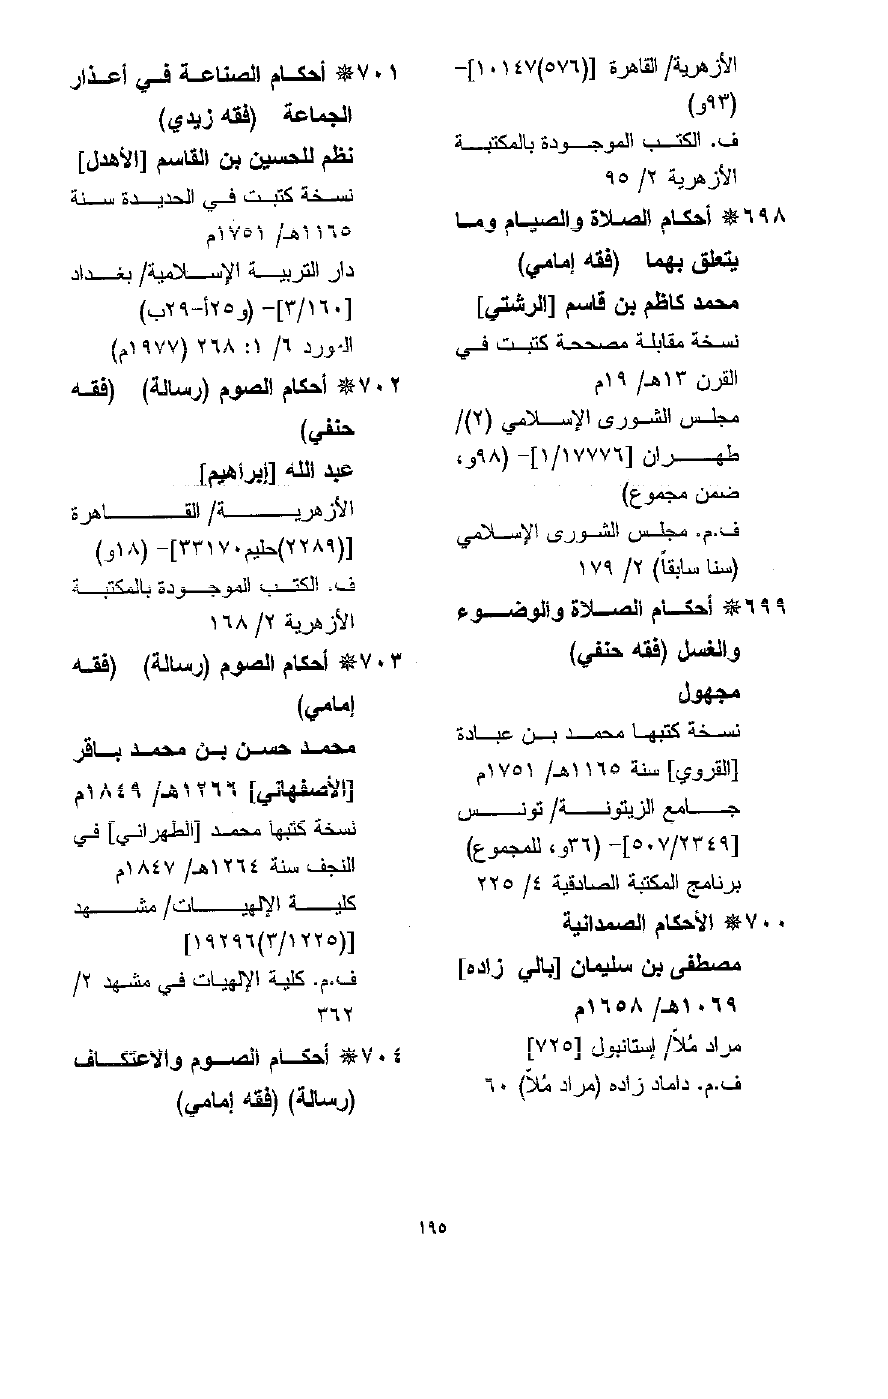 الأزهرية/ القاهرة [(٥٧٦)١٠١٤٧]-
(٩٣و)
ف. الكتب الموجودة بالمكتبة
الأزهرية ٢/ ٩٥
٦٩٨* أحكام الصلاة والصيام وما
يتعلق بهما (فقه إمامي)
محمد كاظم بن قاسم [الرشتي]
نسخة مقابلة مصححة كتبت في
القرن ١٣هـ/ ١٩م
مجلس الشورى الإسلامي (٢)/
طهران [١/١٧٧٧٦]- (٩٨و،
ضمن مجموع)
ف.م. مجلس الشورى الإسلامي
(سنا سابقاً) ٢/ ١٧٩
٦٩٩* أحكام الصلاة والوضوء
والغسل (فقه حنفي)
مجهول
نسخة كتبها محمد بن عبادة
[القروي] سنة ١١٦٥هـ/ ١٧٥١م
جامع الزيتونة/ تونس
[٥٠٧/٢٣٤٩]- (٣٦و، للمجموع)
برنامج المكتبة الصادقية ٤/ ٢٢٥
٧٠٠* الأحكام الصمدانية
مصطفى بن سليمان [بالي زاده]
١٠٦٩هـ/ ١٦٥٨م
مراد مُلاّ/ إستانبول [٧٢٥]
ف.م. داماد زاده (مراد مُلاّ) ٦٠
٧٠١* أحكام الصناعة في أعذار
الجماعة (فقه زيدي)
نظم للحسين بن القاسم [الأهدل]
نسخة كتبت في الحديدة سنة
١١٦٥هـ/ ١٧٥١م
دار التربية الإسلامية/ بغداد
[٣/١٦٠]- (و٢٥أ-٢٩ب)
المورد ٦/ ١: ٢٦٨ (١٩٧٧م)
٧٠٢* أحكام الصوم (رسالة) (فقه
حنفي)
عبد الله [إبراهيم]
الأزهرية/ القاهرة
[(٢٢٨٩)حليم٣٣١٧٠]- (١٨و)
ف. الكتب الموجودة بالمكتبة
الأزهرية ٢/ ١٦٨
٧٠٣* أحكام الصوم (رسالة) (فقه
إمامي)
محمد حسن بن محمد باقر
[الأصفهاني] ١٢٦٦هـ/ ١٨٤٩م
نسخة كتبها محمد [الطهراني] في
النجف سنة ١٢٦٤هـ/ ١٨٤٧م
كلية الإلهيات/ مشهد
[(٣/١٢٢٥)١٩٢٩٦]
ف.م. كلية الإلهيات في مشهد ٢/
٣٦٢
٧٠٤* أحكام الصوم والاعتكاف
(رسالة) (فقه إمامي)
١٩٥